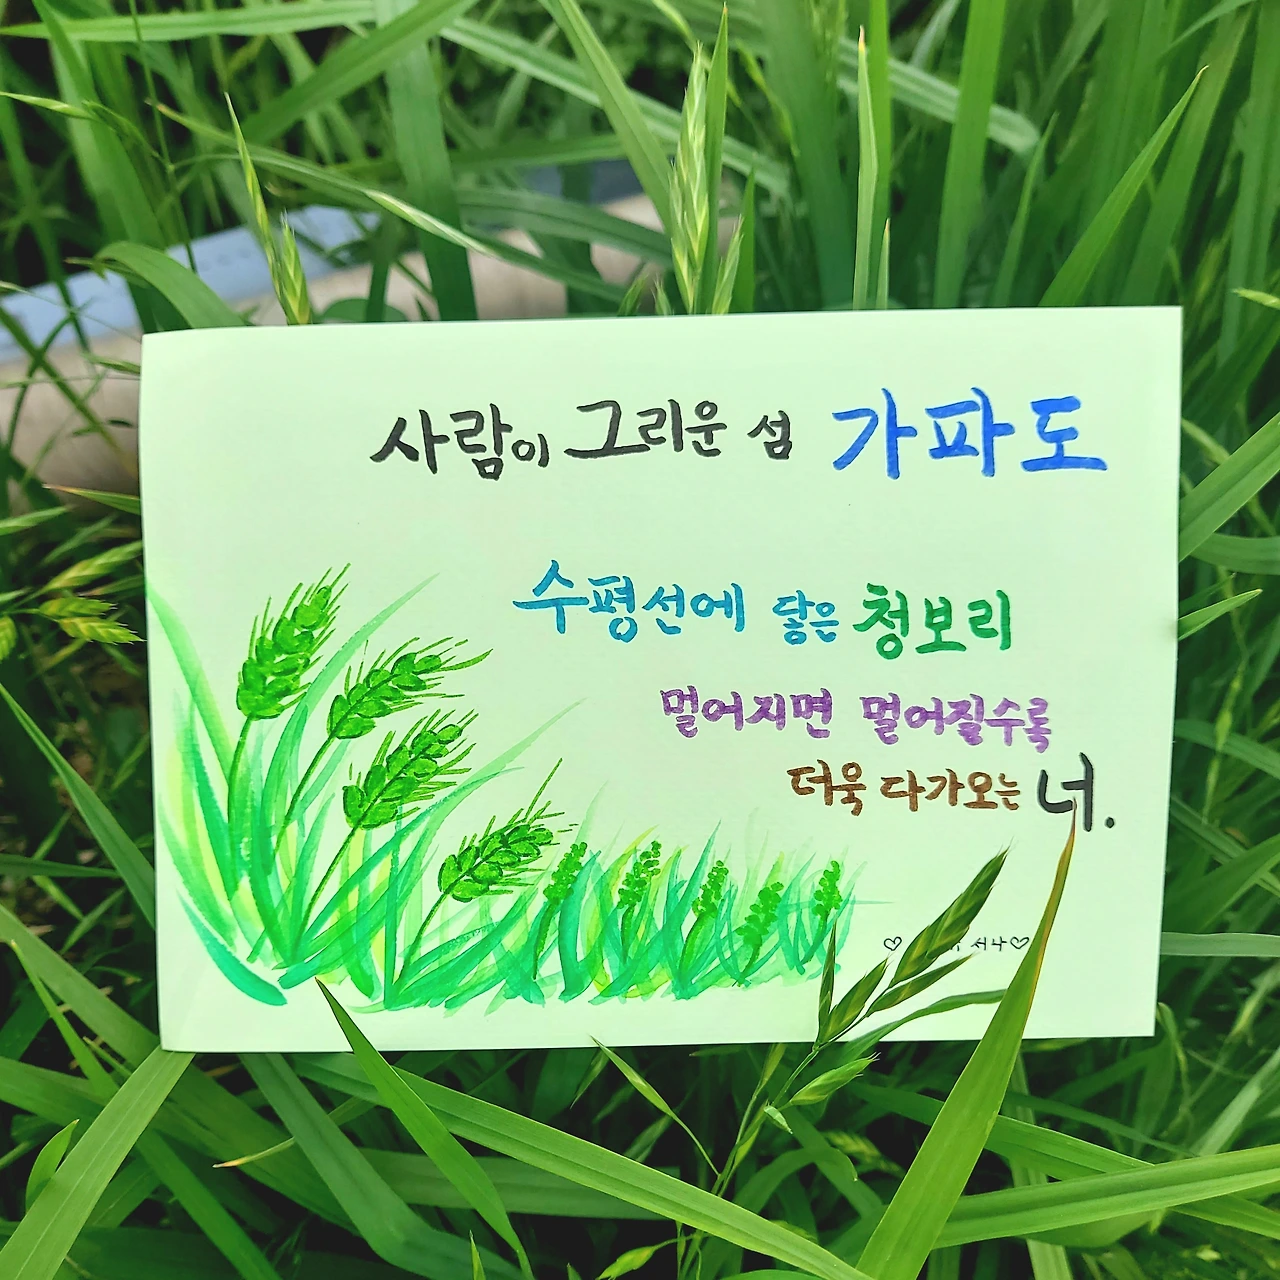 사람이 그리운 섬 가파도
수평선에 닿은 청보리
멀어지면 멀어질수록
더욱 다가오는 너.
♡ 서나♡